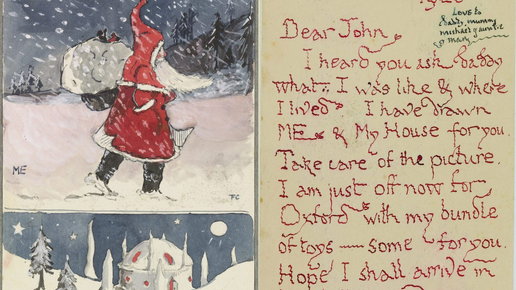 ME
Love to
daddy, mummy
michael & auntie
mary
Dear John,
I heard you ask daddy
what I was like & where
I lived. I have drawn
ME & My House for you.
Take care of the picture.
I am just off now for
Oxford with my bundle
of toys — some for you.
Hope I shall arrive in